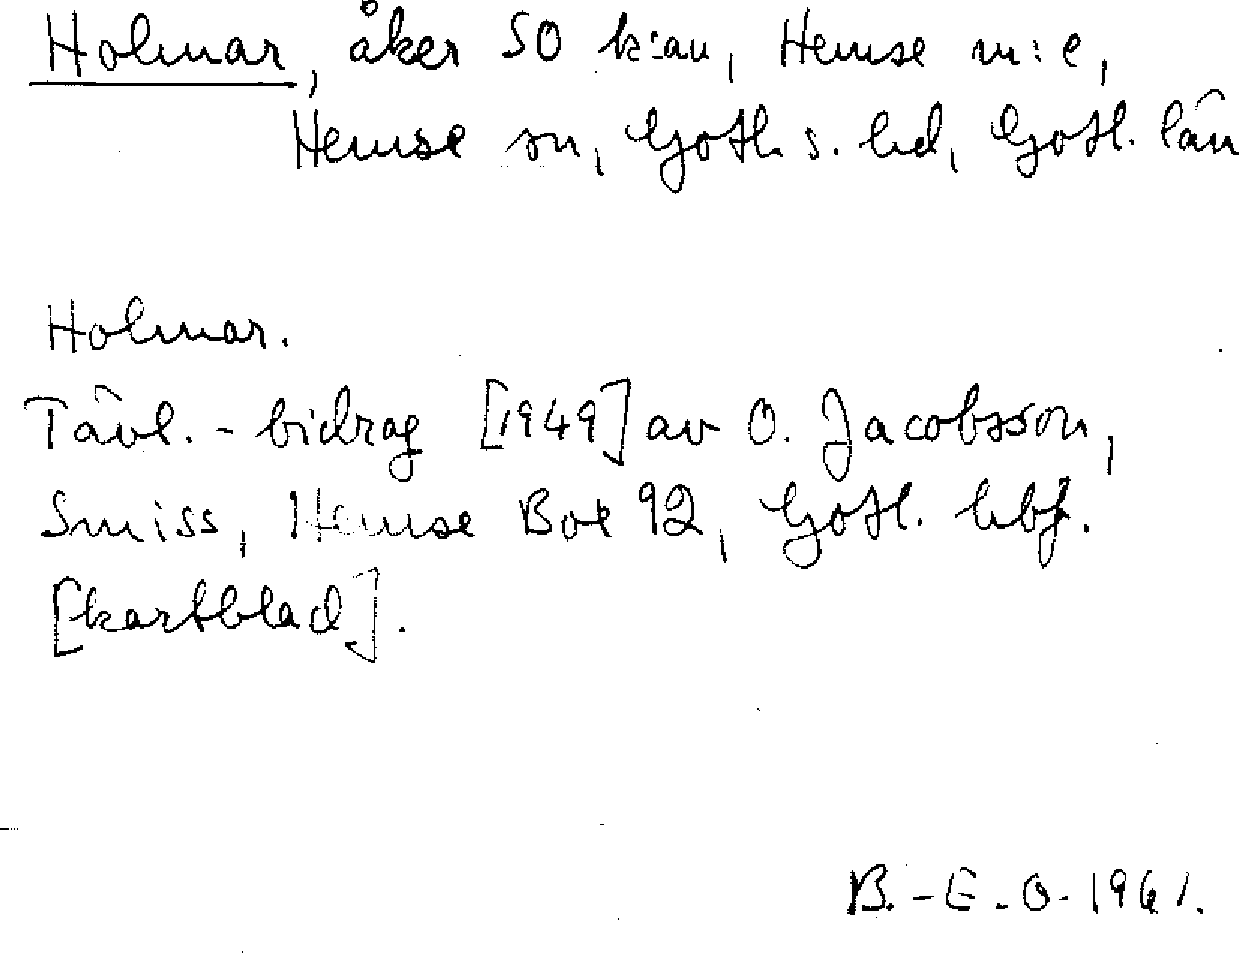 Holmar, åker SO k:an, Hemse m:e,
Hemse sn, Gotl. s. hd, Gotl. län
Holmar.
Tävl.-bidrag [1949] av O. Jacobsson,
Smiss, Hemse Box 92, Gotl. hbf.
[kartblad].
B.-E. O. 1961.